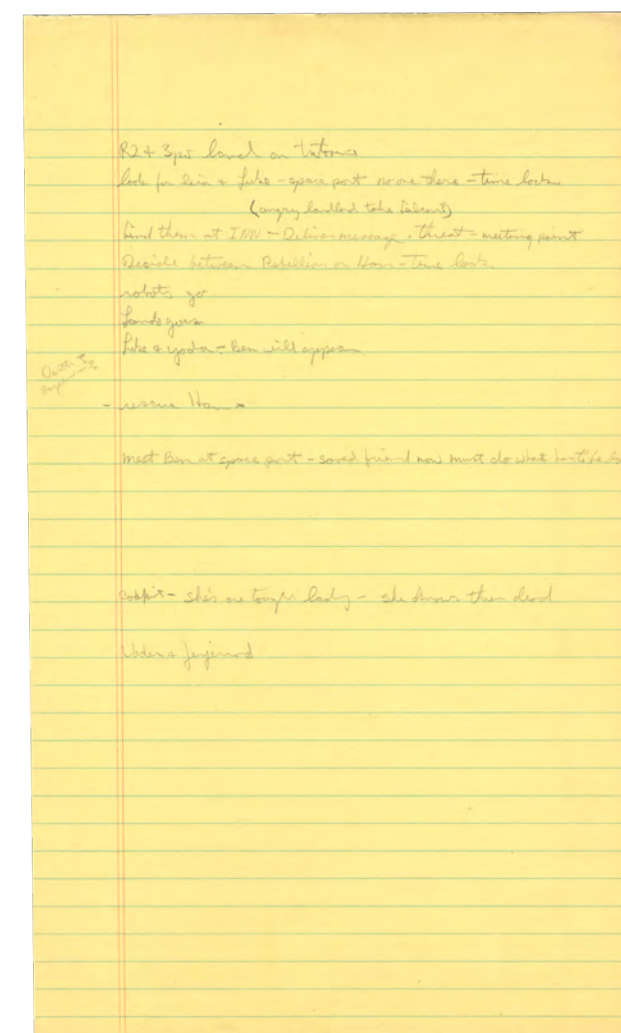 R2 + 3po land on Tatooine
look for Leia + Luke - space port no one there - time lock
(angry landlord take falcon)
find them at INN - Deliver message, threat - meeting point
Decide between Rebellion or Han - time lock
robots go
Lando goes
Luke & yoda - Ben will appear
Death
- rescue Han -
meet Ben at space port - saved friend now must do what has to be
cockpit - she's one tough lady - she knows
Vader + Jerjerrod